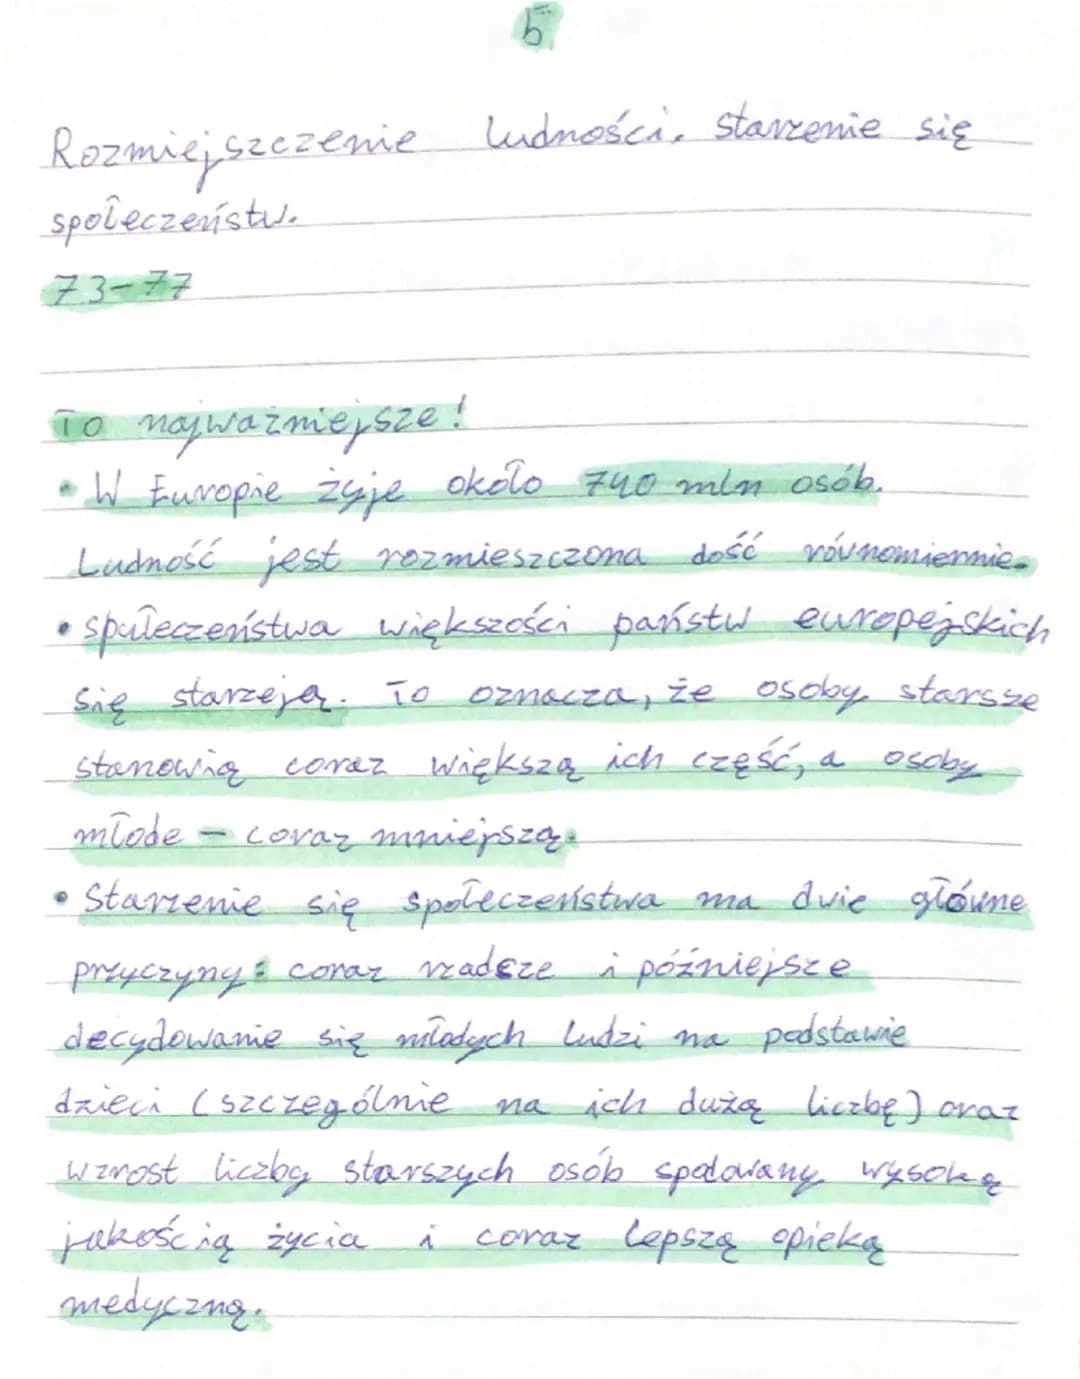 5.
Rozmiejszczenie ludności. starzenie się
społeczeństw.
73-77
To najważniejsze!
• W Europie żyje około 740 mln osób.
Ludność jest rozmieszczona dość równomiernie.
• społeczeństwa większości państw europejskich
się starzeją. To oznacza, że osoby starsze
stanowią coraz większą ich część, a osoby
młode - coraz mniejszą.
• Starzenie się społeczeństwa ma dwie główne
przyczyny: coraz rzadsze i późniejsze
decydowanie się młodych ludzi na podstawie
dzieci (szczególnie na ich dużą liczbę) oraz
wzrost liczby starszych osób spodowany wysoką
jakością życia i coraz lepszą opieką
medyczną.